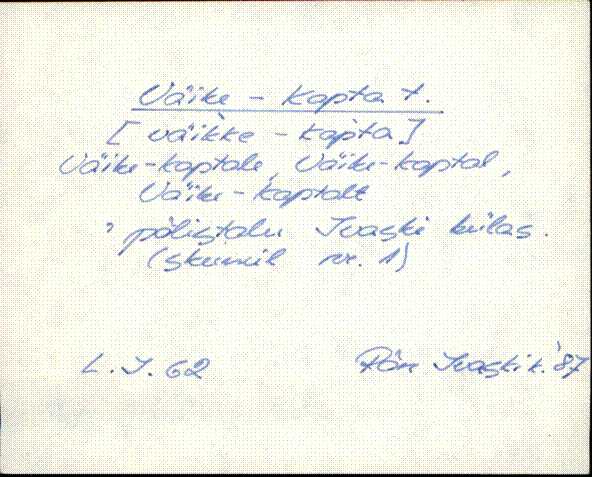 Väike - Kapta t.
[väikke - kapta]
Väike-kaptale, Väike-kaptal,
Väike - kaptalt
, põlistalu Ivaski külas.
(skeemil nr. 1)
L. I. 62 Rõn Ivaski k. '87